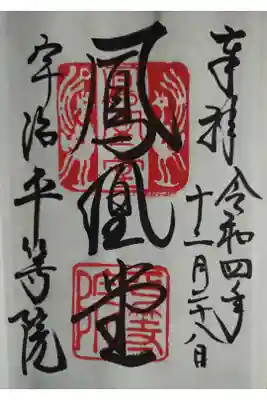 奉拝
令和四年
十二月二十八日
鳳凰堂
宇治平等院